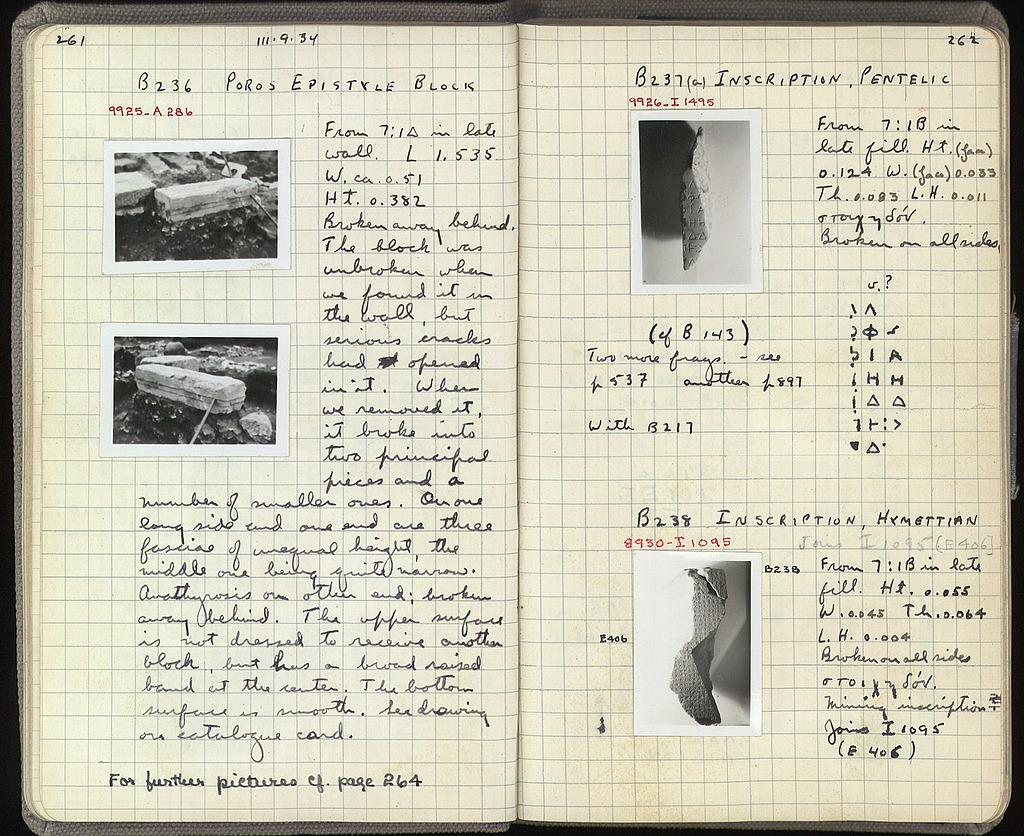 261
III.9.34
B236 POROS EPISTYLE BLOCK
9925-A 286
From 7:1Δ in late
wall. L 1.535
W. ca. 0.51
Ht. 0.382
Broken away behind.
The block was
unbroken when
we found it in
the wall, but
serious cracks
had opened
in it. When
we removed it,
it broke into
two principal
pieces and a
number of smaller ones. On one
long side and one end are three
fasciae of unequal height, the
middle one being quite narrow.
Anathyrosis on other end; broken
away behind. The upper surface
is not dressed to receive another
block, but has a broad raised
band at the center. The bottom
surface is smooth. See drawing
on catalogue card.
For further pictures cf. page 264
262
B237(a) INSCRIPTION, PENTELIC
9926-I 1495
From 7:1B in
late fill. Ht. (face)
0.124 W. (face) 0.033
Th. 0.083 L.H. 0.011
στοιχηδόν.
Broken on all sides,
v.?
Λ
Φ
Ι Α
Η Η
Δ Δ
Δ
(cf B 143)
Two more frags. - see
p 537 another p 897
With B217
B238 INSCRIPTION, HYMETTIAN
8930-I 1095
Joins I 1095 [E 406]
B238
E406
From 7:1B in late
fill. Ht. 0.055
W. 0.045 Th. 0.064
L.H. 0.004
Broken on all sides
στοιχηδόν.
Mining inscription
Joins I 1095
(E 406)